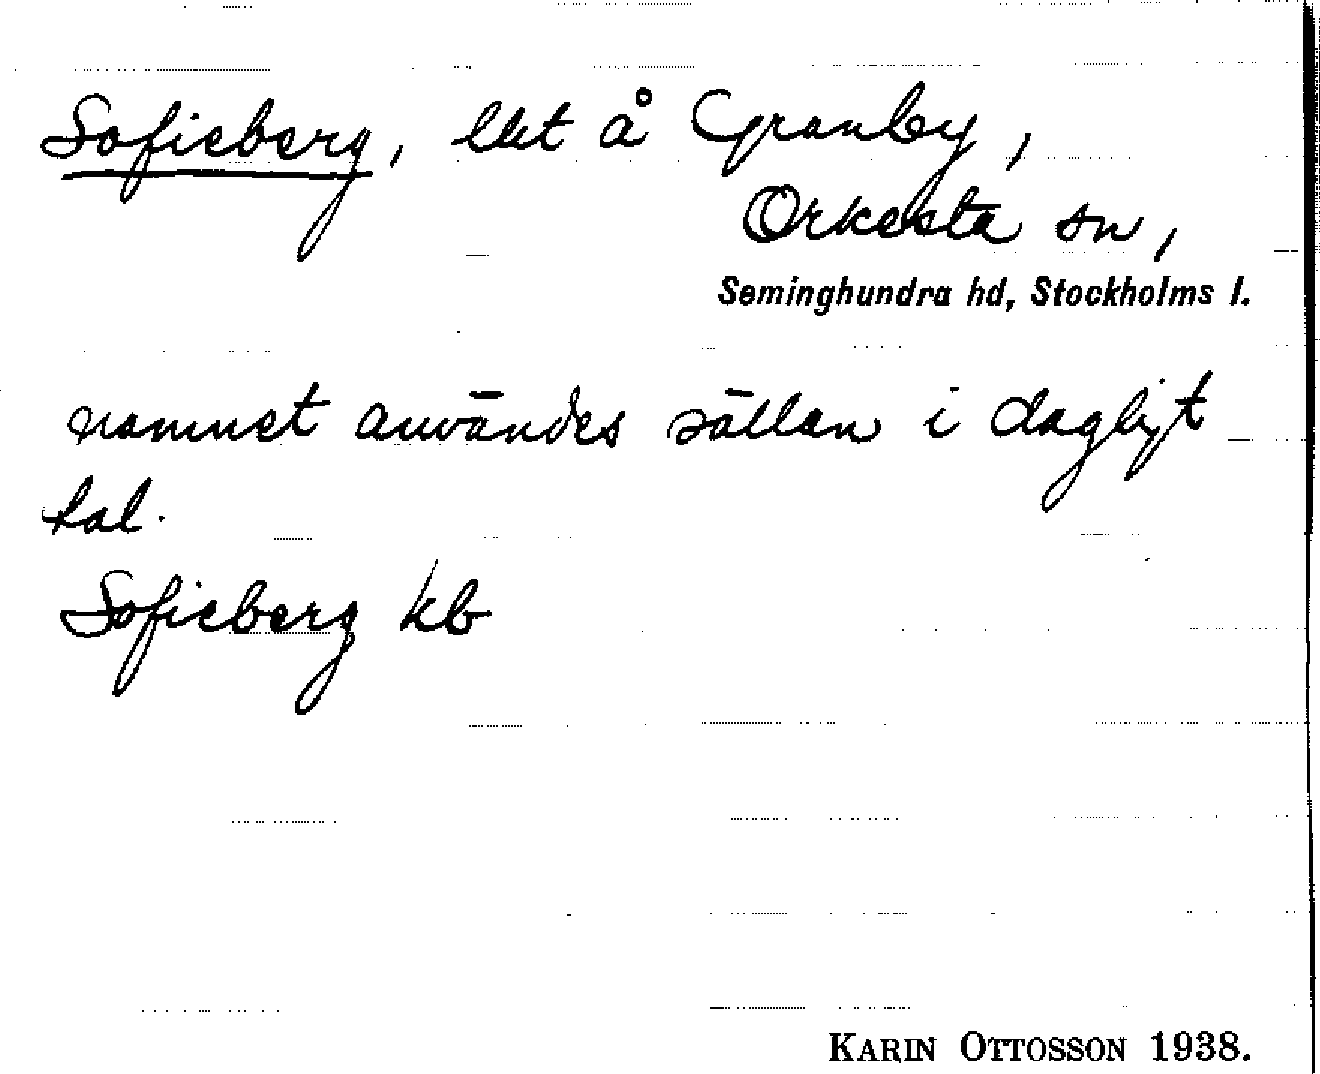 Sofieberg, lht å Granby,
Orkesta sn,
Seminghundra hd, Stockholms l.
namnet användes sällan i dagligt
tal.
Sofieberg kb
KARIN OTTOSSON 1938.